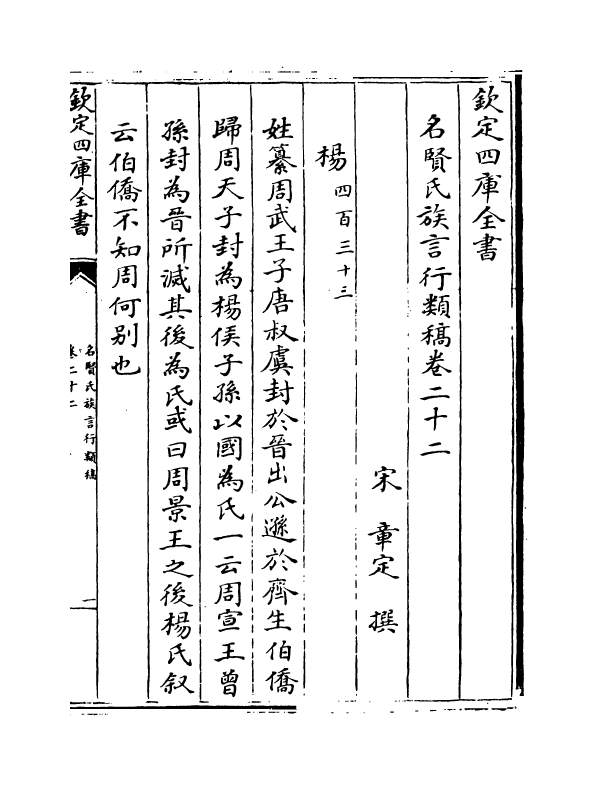 欽定四庫全書
名賢氏族言行類稿卷二十二
宋 章定 撰
楊四百三十三
姓纂周武王子唐叔虞封於晉出公遜於齊生伯僑
歸周天子封為楊侯子孫以國為氏一云周宣王曾
孫封為晉所滅其後為氏或曰周景王之後楊氏叙
云伯僑不知周何别也
欽定四庫全書
名賢氏族言行類稿
卷二十二
一